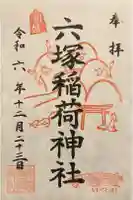 奉拝
六塚稲荷神社
令和六年十二月二十三日